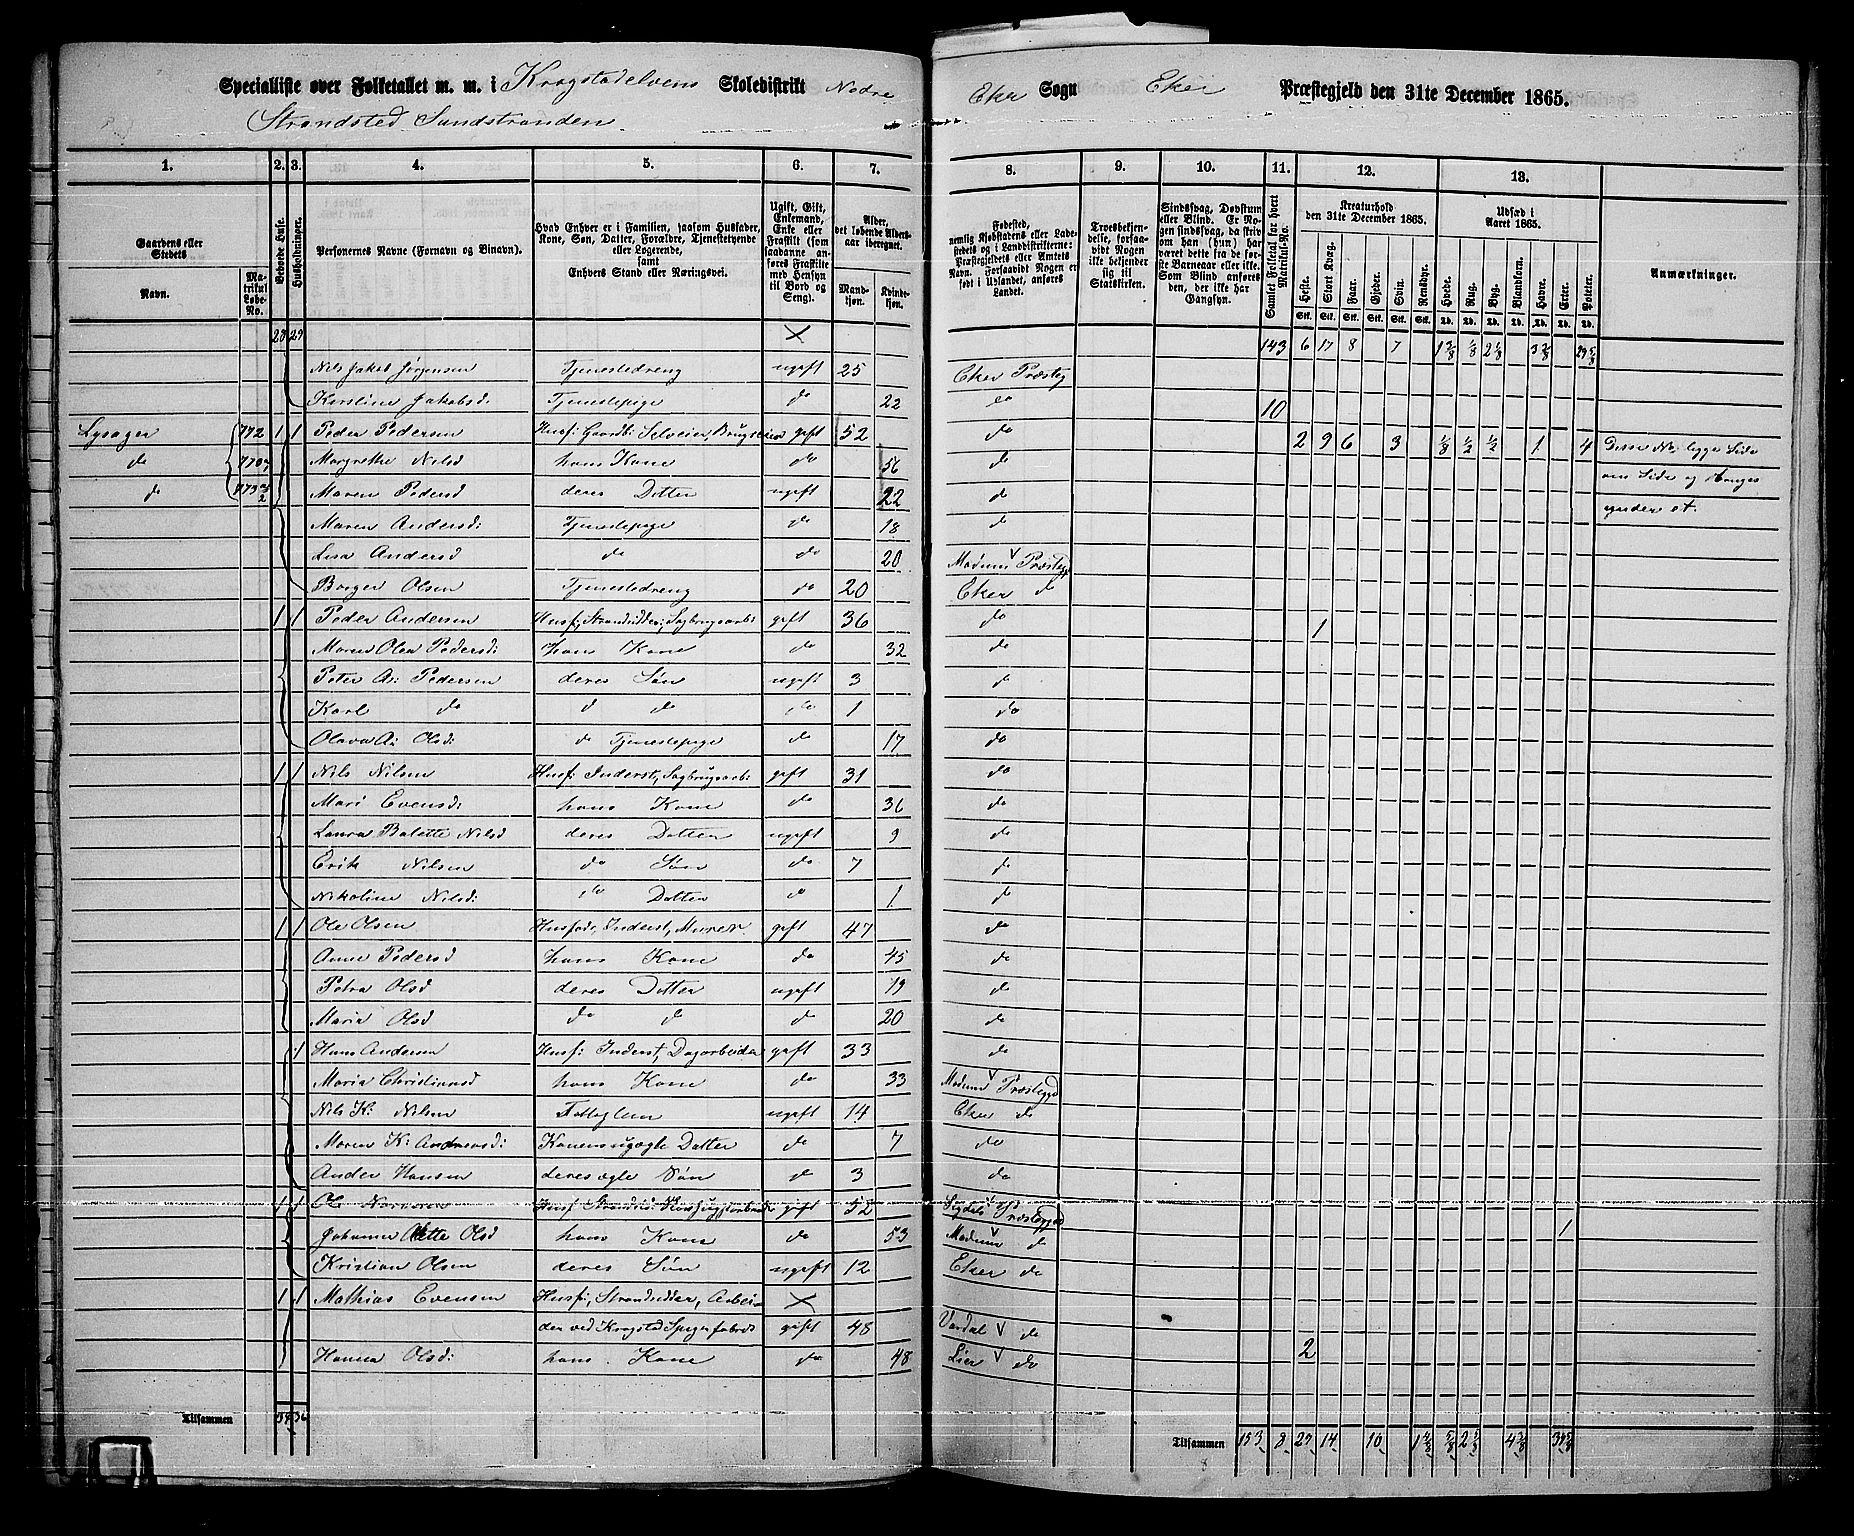 Specialliste over Folketallet m. m. i Krogstadelvens Skoledistrikt Nedre Eker Sogn Eker Præstegjeld den 31te December 1865.
Strandsted Sandstranden
1. 2. 3. 4. 5. 6. 7. 8. 9. 10. 11. 12. 13.
Gaardens eller Stedets Navn. Matrikul Løbe-No.
Beboede Huse.
Husholdninger.
Personernes Navne (Fornavn og Binavn).
Hvad Enhver er i Familien, saasom Husfader, Kone, Søn, Datter, Forældre, Tjenestetyende eller Logerende, samt Enhvers Stand eller Næringsvei.
Ugift, Gift, Enkemand, Enke eller Fraskilt (som saadanne anføres Fraskilte med Hensyn til Bord og Seng).
Alder, det løbende Aldersaar iberegnet. Mandkjøn. Kvindekjøn.
Fødested, nemlig Kjøbstadens eller Ladestedets og i Landdistrikterne: Præstegjeldets eller Amtets Navn. Forsaavidt Nogen er født i Udlandet, anføres Landet.
Troesbekjendelse, forsaavidt Nogen ikke bekjender sig til Statskirken.
Sindssvag, Døvstum eller Blind. Er Nogen sindssvag, da skriv om han (hun) har været dette fra de første Barneaar eller ikke. Som Blind anføres den, der ikke har Gangsyn.
Samlet Folketal for hvert Matrikul-No.
Kreaturhold den 31te December 1865.
Heste. Stort Kvæg. Faar. Gjeder. Svin. Rensdyr.
Udsæd i Aaret 1865.
Hvede. Rug. Byg. Blandkorn. Havre. Erter. Poteter.
Anmærkninger.
28 29 143 6 17 8 7 1 2/8 1/8 2 1/8 3 2/8 29 5/8
Nils Jakob Jørgensen Tjenestedreng ugift 25 Eker Præsteg
Kirstine Jakobsd: Tjenestepige do 22 do 10
Lysager 772 1 1 Peder Pedersen Husf: Gaardb: Selveier, gift 52 do 2 9 6 3 1/8 1/2 1/2 1 4 Disse No. ligge Side
do Margrethe Nilsd hans Kone do 56 do om Side og bruges
do Maren Pedersd deres Datter ugift 22 do under et.
Maren Andersd: Tjenestepige do 18 do
Lisa Andersd do do 20 Modum Præsteg
Borger Olsen Tjenestedreng do 20 Eker do
1 1 Peder Andersen Husf; Strandsidder, Sagbrugsarb: gift 36 do 1
Maren Olea Pedersd: hans Kone do 32 do
Peter A: Pedersen deres Søn ugift 3 do
Karl do d do do 1 do
Olava A: Olsd: do Tjenestepige do 17 do
1 1 Nils Nilsen Husf: Inderst, Sagbrugsarb: gift 31 do
Mari Evensd: hans Kone do 36 do
Laura Balette Nilsd deres Datter ugift 9 do
Erik Nilsen do Søn do 7 do
Nikoline Nilsd: do Datter do 1 do
1 1 Ole Olsen Husfad, Inderst, Murer gift 47 do
Anne Pedersd hans Kone do 45 do
Petra Olsd deres Datter ugift 19 do
Maria Olsd do do do 20 do
1 Hans Andersen Husf: Inderst, Dagarbeider gift 33 do
Maria Christiansd hans Kone do 33 Modum Præstegjd
Nils K: Nilsen ugift 14 Eker do
Maren K: Andreasd: Konens uægte Datter do 7 do
Anders Hansen deres ægte Søn do 3 do
1 1 Ole gift 52 Præstegjeld
Johanne Olsd hans Kone do 53 Modum do 1
Kristian Olsen deres Søn ugift 12 Eker do
1 1 Mathias Evensen Husf; Strandsidder, Arbei-
der ved Krogstad Spigerfabrik gift 48 Vardal do
Hanna Olsd: hans Kone do 48 Lier do 2
Tilsammen 34 36 Tilsammen 153 8 27 14 10 1 3/8 5/8 2 5/8 4 2/8